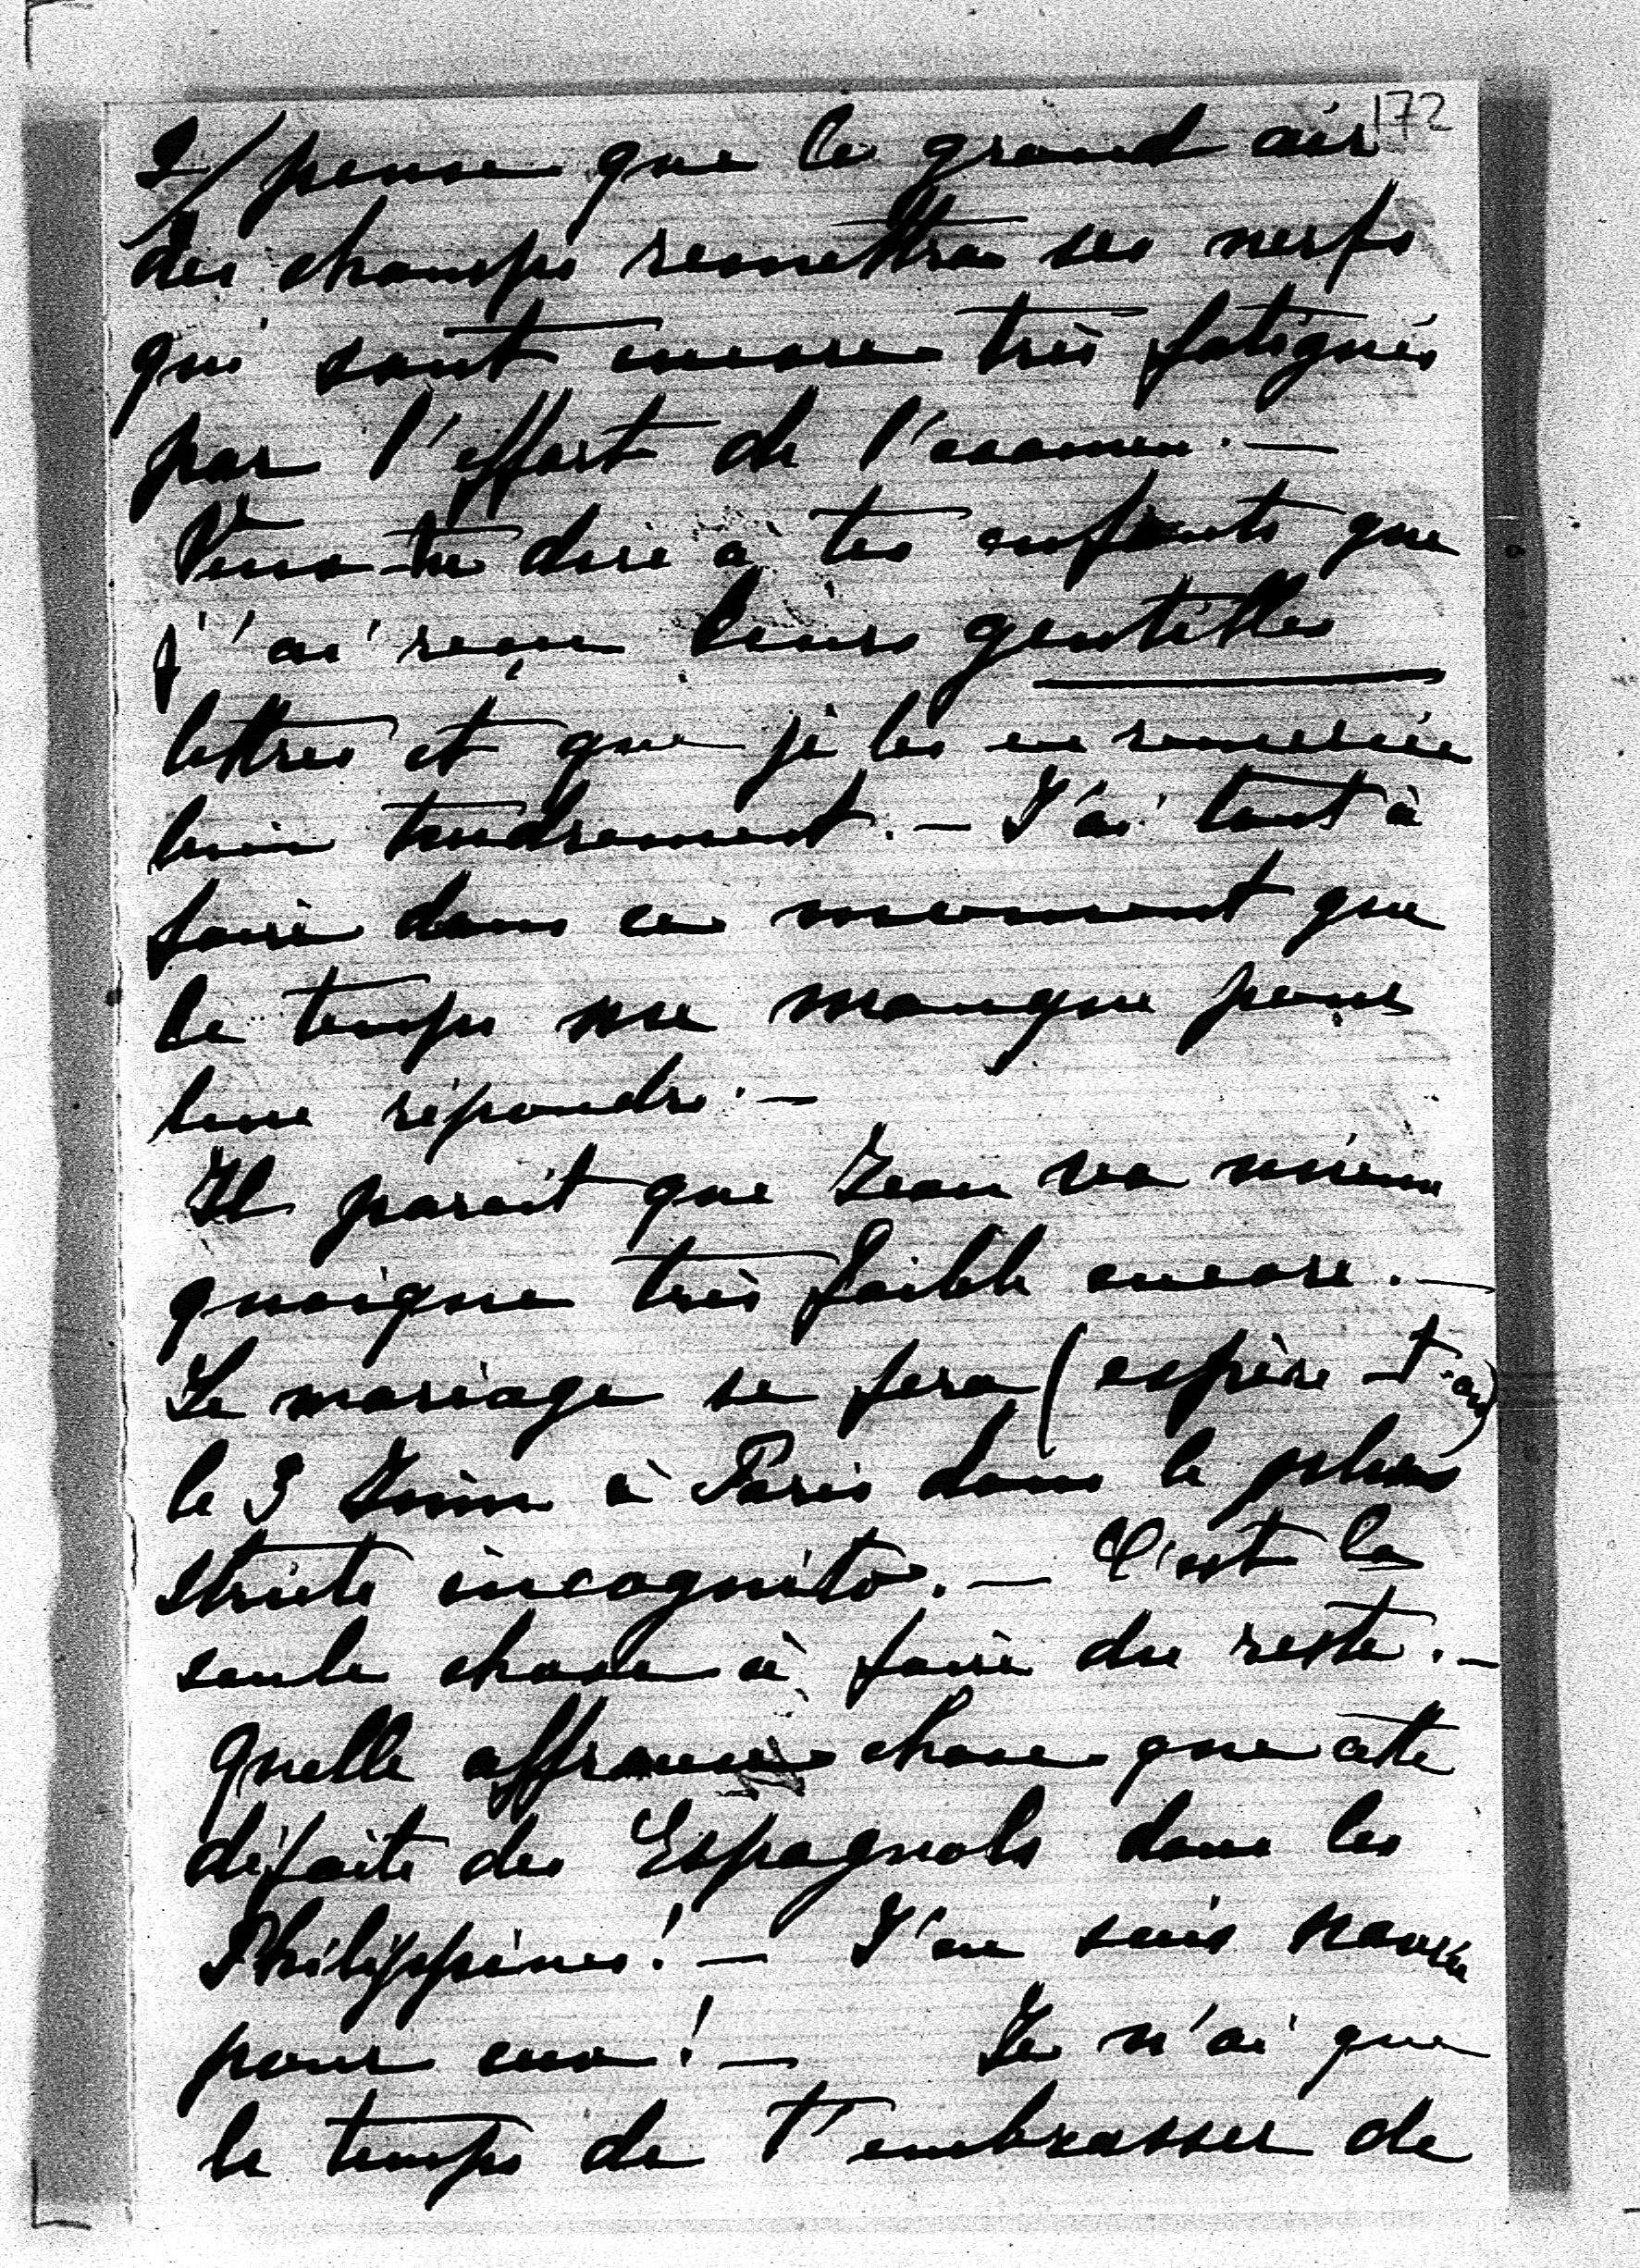 172
2/ pense que le grand air
des champs remettra ses nerfs
qui sont encore très fatigués
par l'effort de l'examen. —
Veux-tu dire à tes enfants que
j'ai reçu leurs gentilles
lettres et que je les en remercie
bien tendrement. — J'ai tant à
faire dans ce moment que
le temps me manque pour
leur répondre. —
Il parait que Jean va mieux
quoique très faible encore. —
Le mariage se fera (espère-t-on)
le 3 Juin à Paris dans le plus
stricte incognito. — C'est la
seule chose à faire du reste. —
Quelle affreuse chose que cette
défaite des Espagnols dans les
Philippines! — J'en suis navrée
pour eux! — Je n'ai que
le temps de t'embrasser de